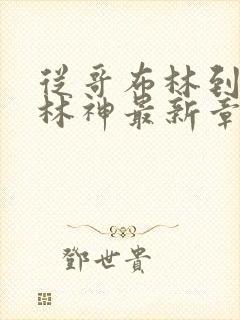 從哥布林到
林神最新章
鄧世貴